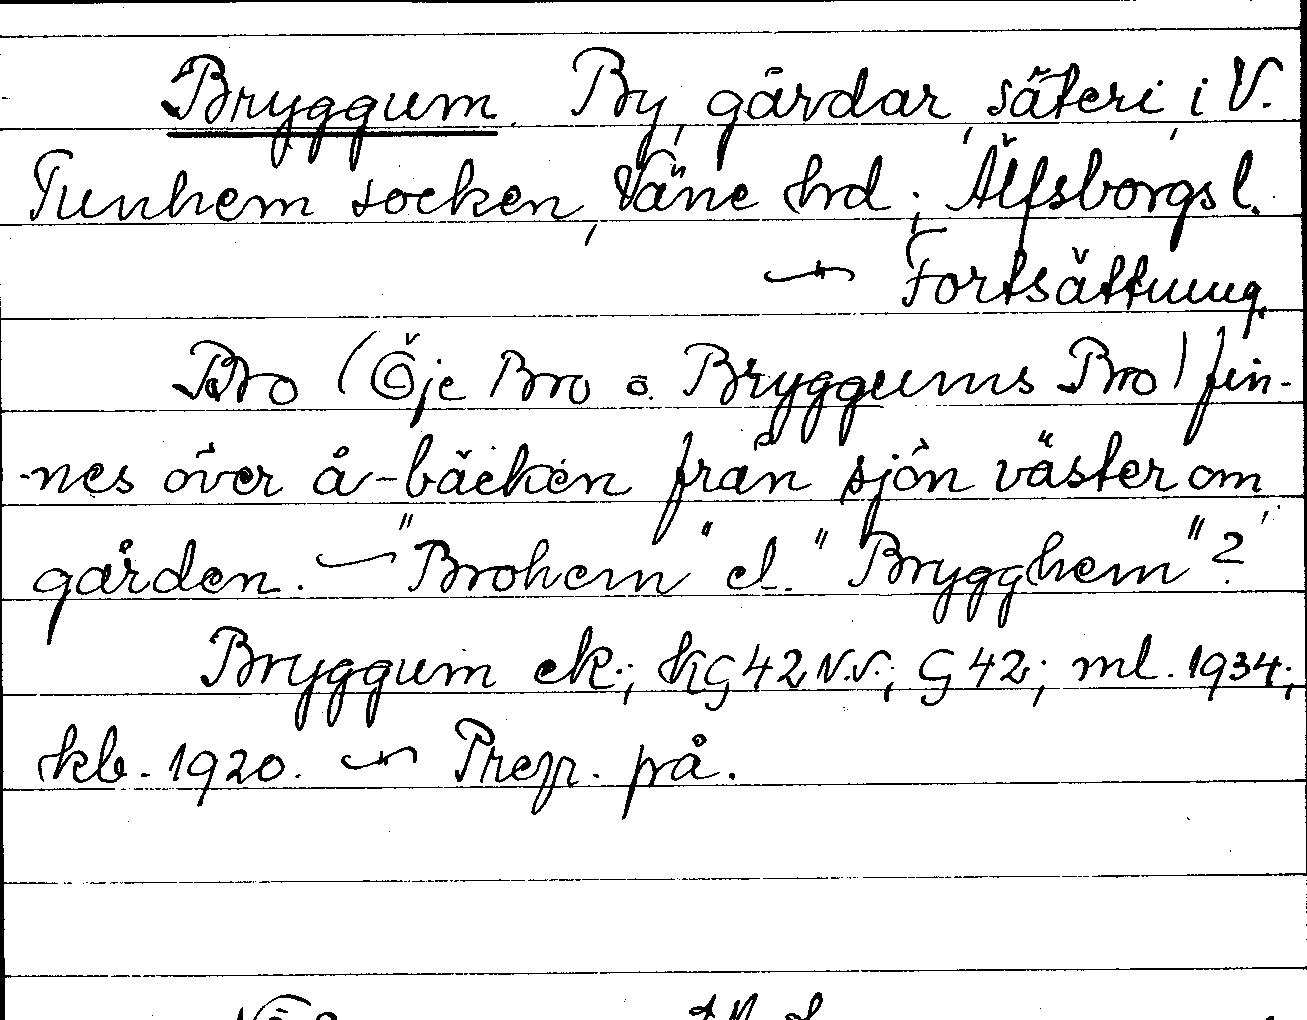 Bryggum. By, gårdar, säteri, i V.
Tunhem socken, Väne hrd; Älfsborgs l.
— Fortsättning.
Bro (Öje Bro o. Bryggums Bro) fin-
-nes över å-bäcken från sjön väster om
gården. — "Brohem" el. "Brygghem"?
Bryggum ek.; KG 42 N.V.; G 42; ml. 1934;
kb. 1920. — Prep. på.